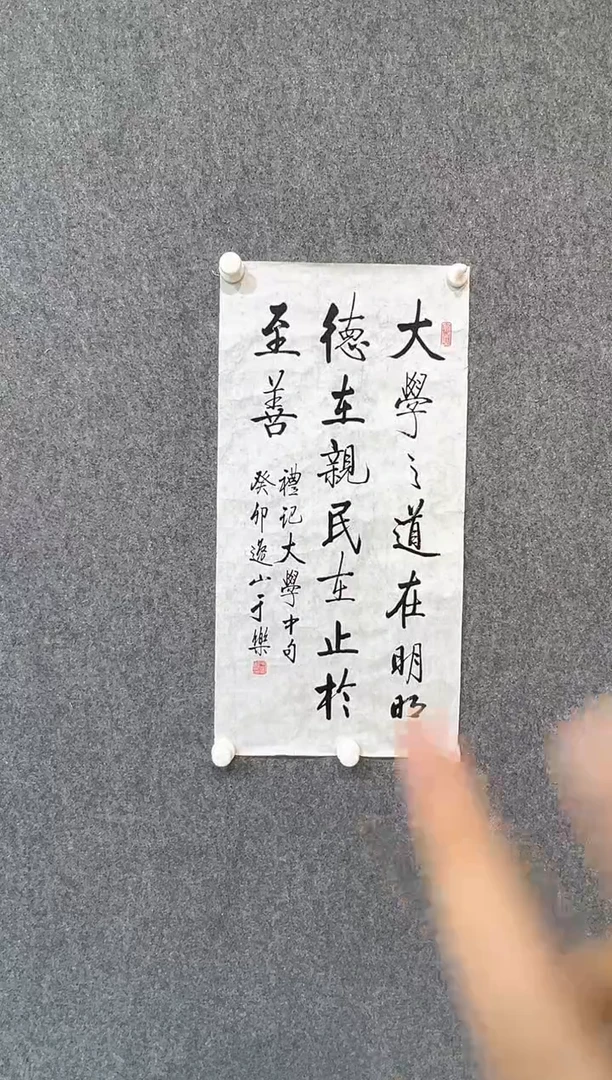 大學之道在明明
德在親民在止於
至善
禮記大學中句
癸卯山于樂